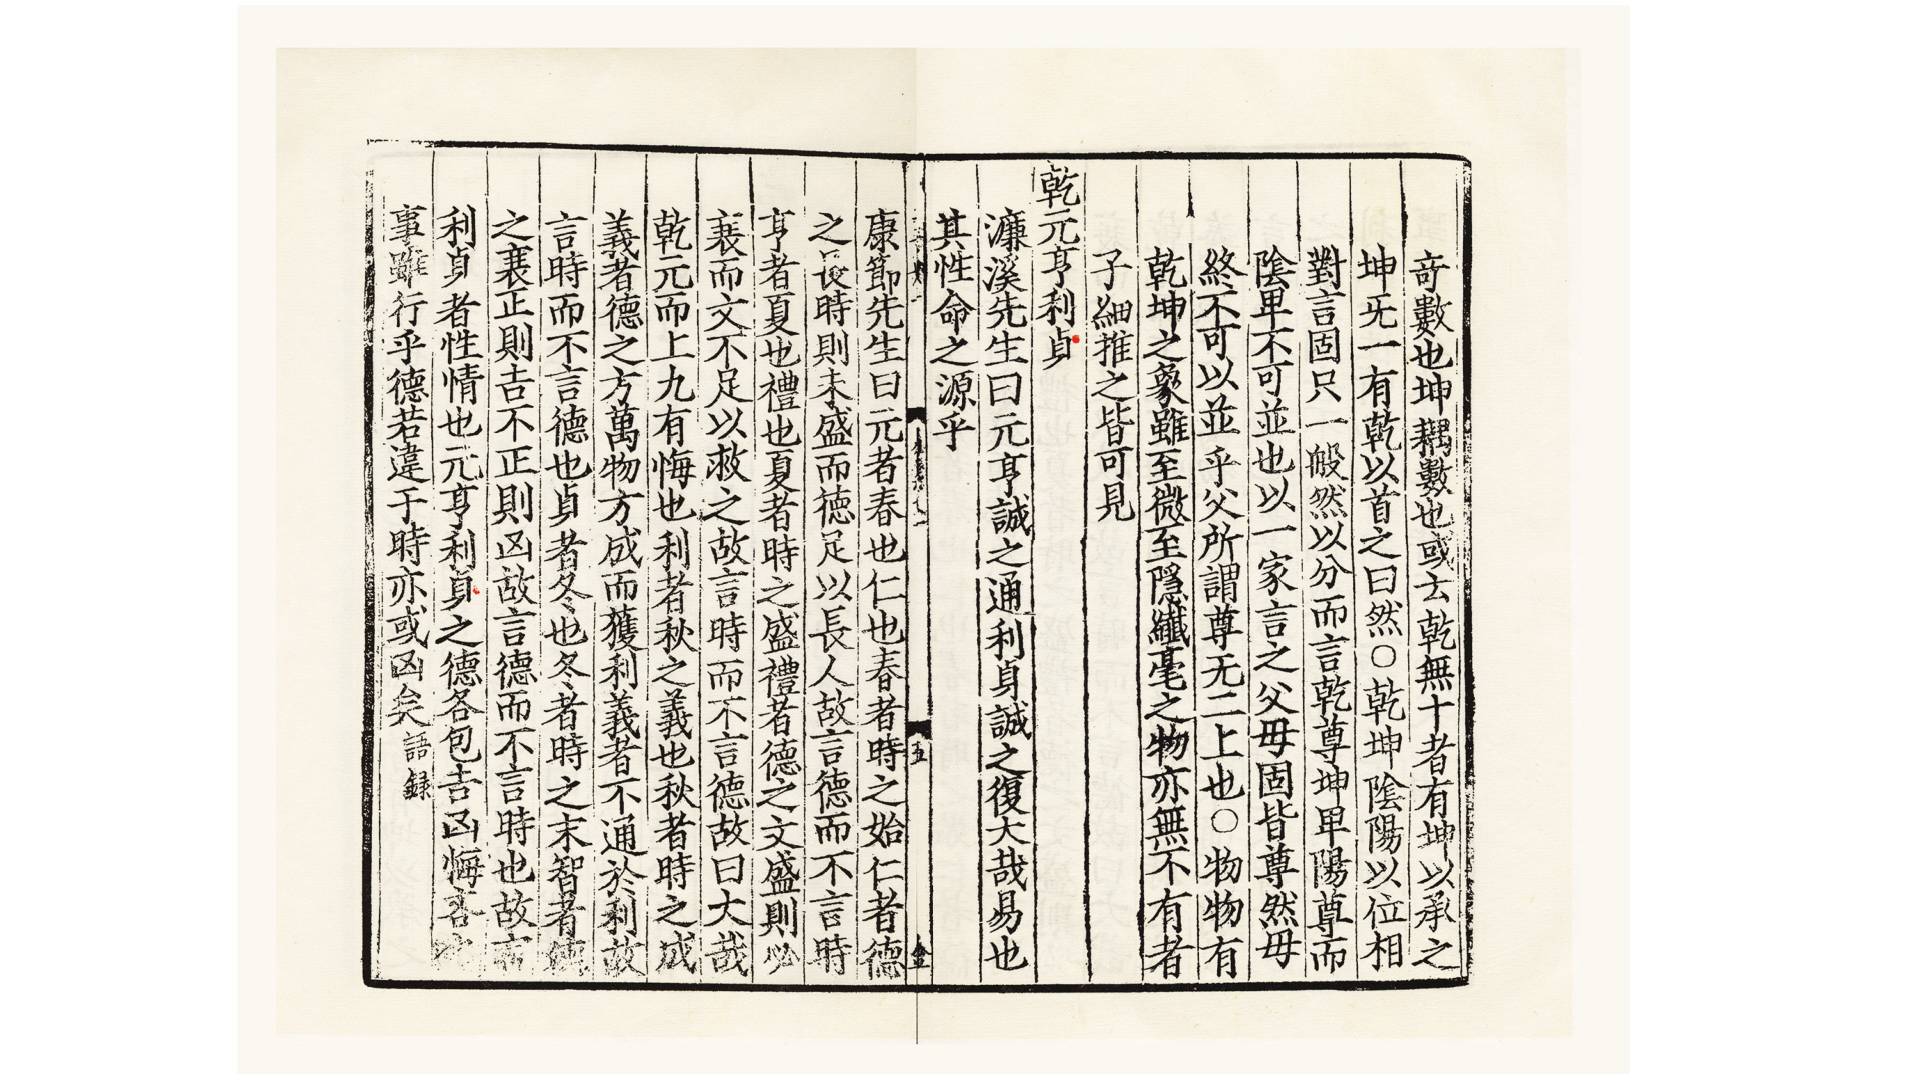 奇數也坤耦數也或云乾無十者有坤以承之
坤无一有乾以首之曰然○乾坤陰陽以位相
對言固只一般然以分而言乾尊坤卑陽尊而
陰卑不可並也以一家言之父母固皆尊然母
終不可以並乎父所謂尊无二上也○物物有
乾坤之象雖至微至隱纖毫之物亦無不有者
子細推之皆可見
乾元亨利貞
濂溪先生曰元亨誠之通利貞誠之復大哉易也
其性命之源乎
五
金
康節先生曰元者春也仁也春者時之始仁者德
之長時則未盛而德足以長人故言德而不言時
亨者夏也禮也夏者時之盛禮者德之文盛則必
衰而文不足以救之故言時而不言德故曰大哉
乾元而上九有悔也利者秋之義也秋者時之成
義者德之方萬物方成而獲利義者不通於利故
言時而不言德也貞者冬也冬者時之末智者德
之衰正則吉不正則凶故言德而不言時也故言
利貞者性情也元亨利貞之德各包吉凶悔吝
事雖行乎德若違于時亦或凶矣語録